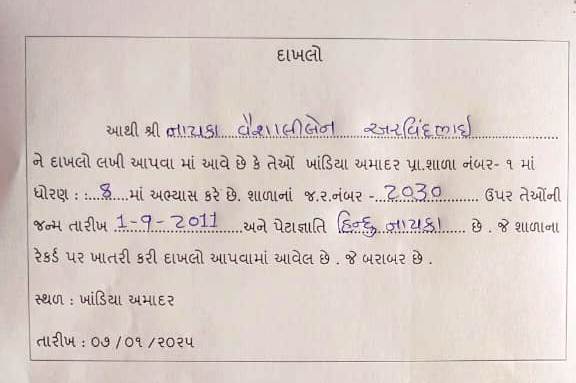 દાખલો
આથી શ્રી નાયકા વૈશાલીબેન અરવિંદભાઈ
ને દાખલો લખી આપવા માં આવે છે કે તેઓ ખાંડિયા અમાદર પ્રા.શાળા નંબર- ૧ માં
ધોરણ : :...8....માં અભ્યાસ કરે છે. શાળાનાં જ.ર.નંબર -..2030............ ઉપર તેઓની
જન્મ તારીખ .1-9-2011......અને પેટાજ્ઞાતિ હિન્દુ નાયકા..... છે . જે શાળાના
રેકર્ડ પર ખાતરી કરી દાખલો આપવામાં આવેલ છે . જે બરાબર છે .
સ્થળ : ખાંડિયા અમાદર
તારીખ : ૦૭ /૦૧ /૨૦૨૫